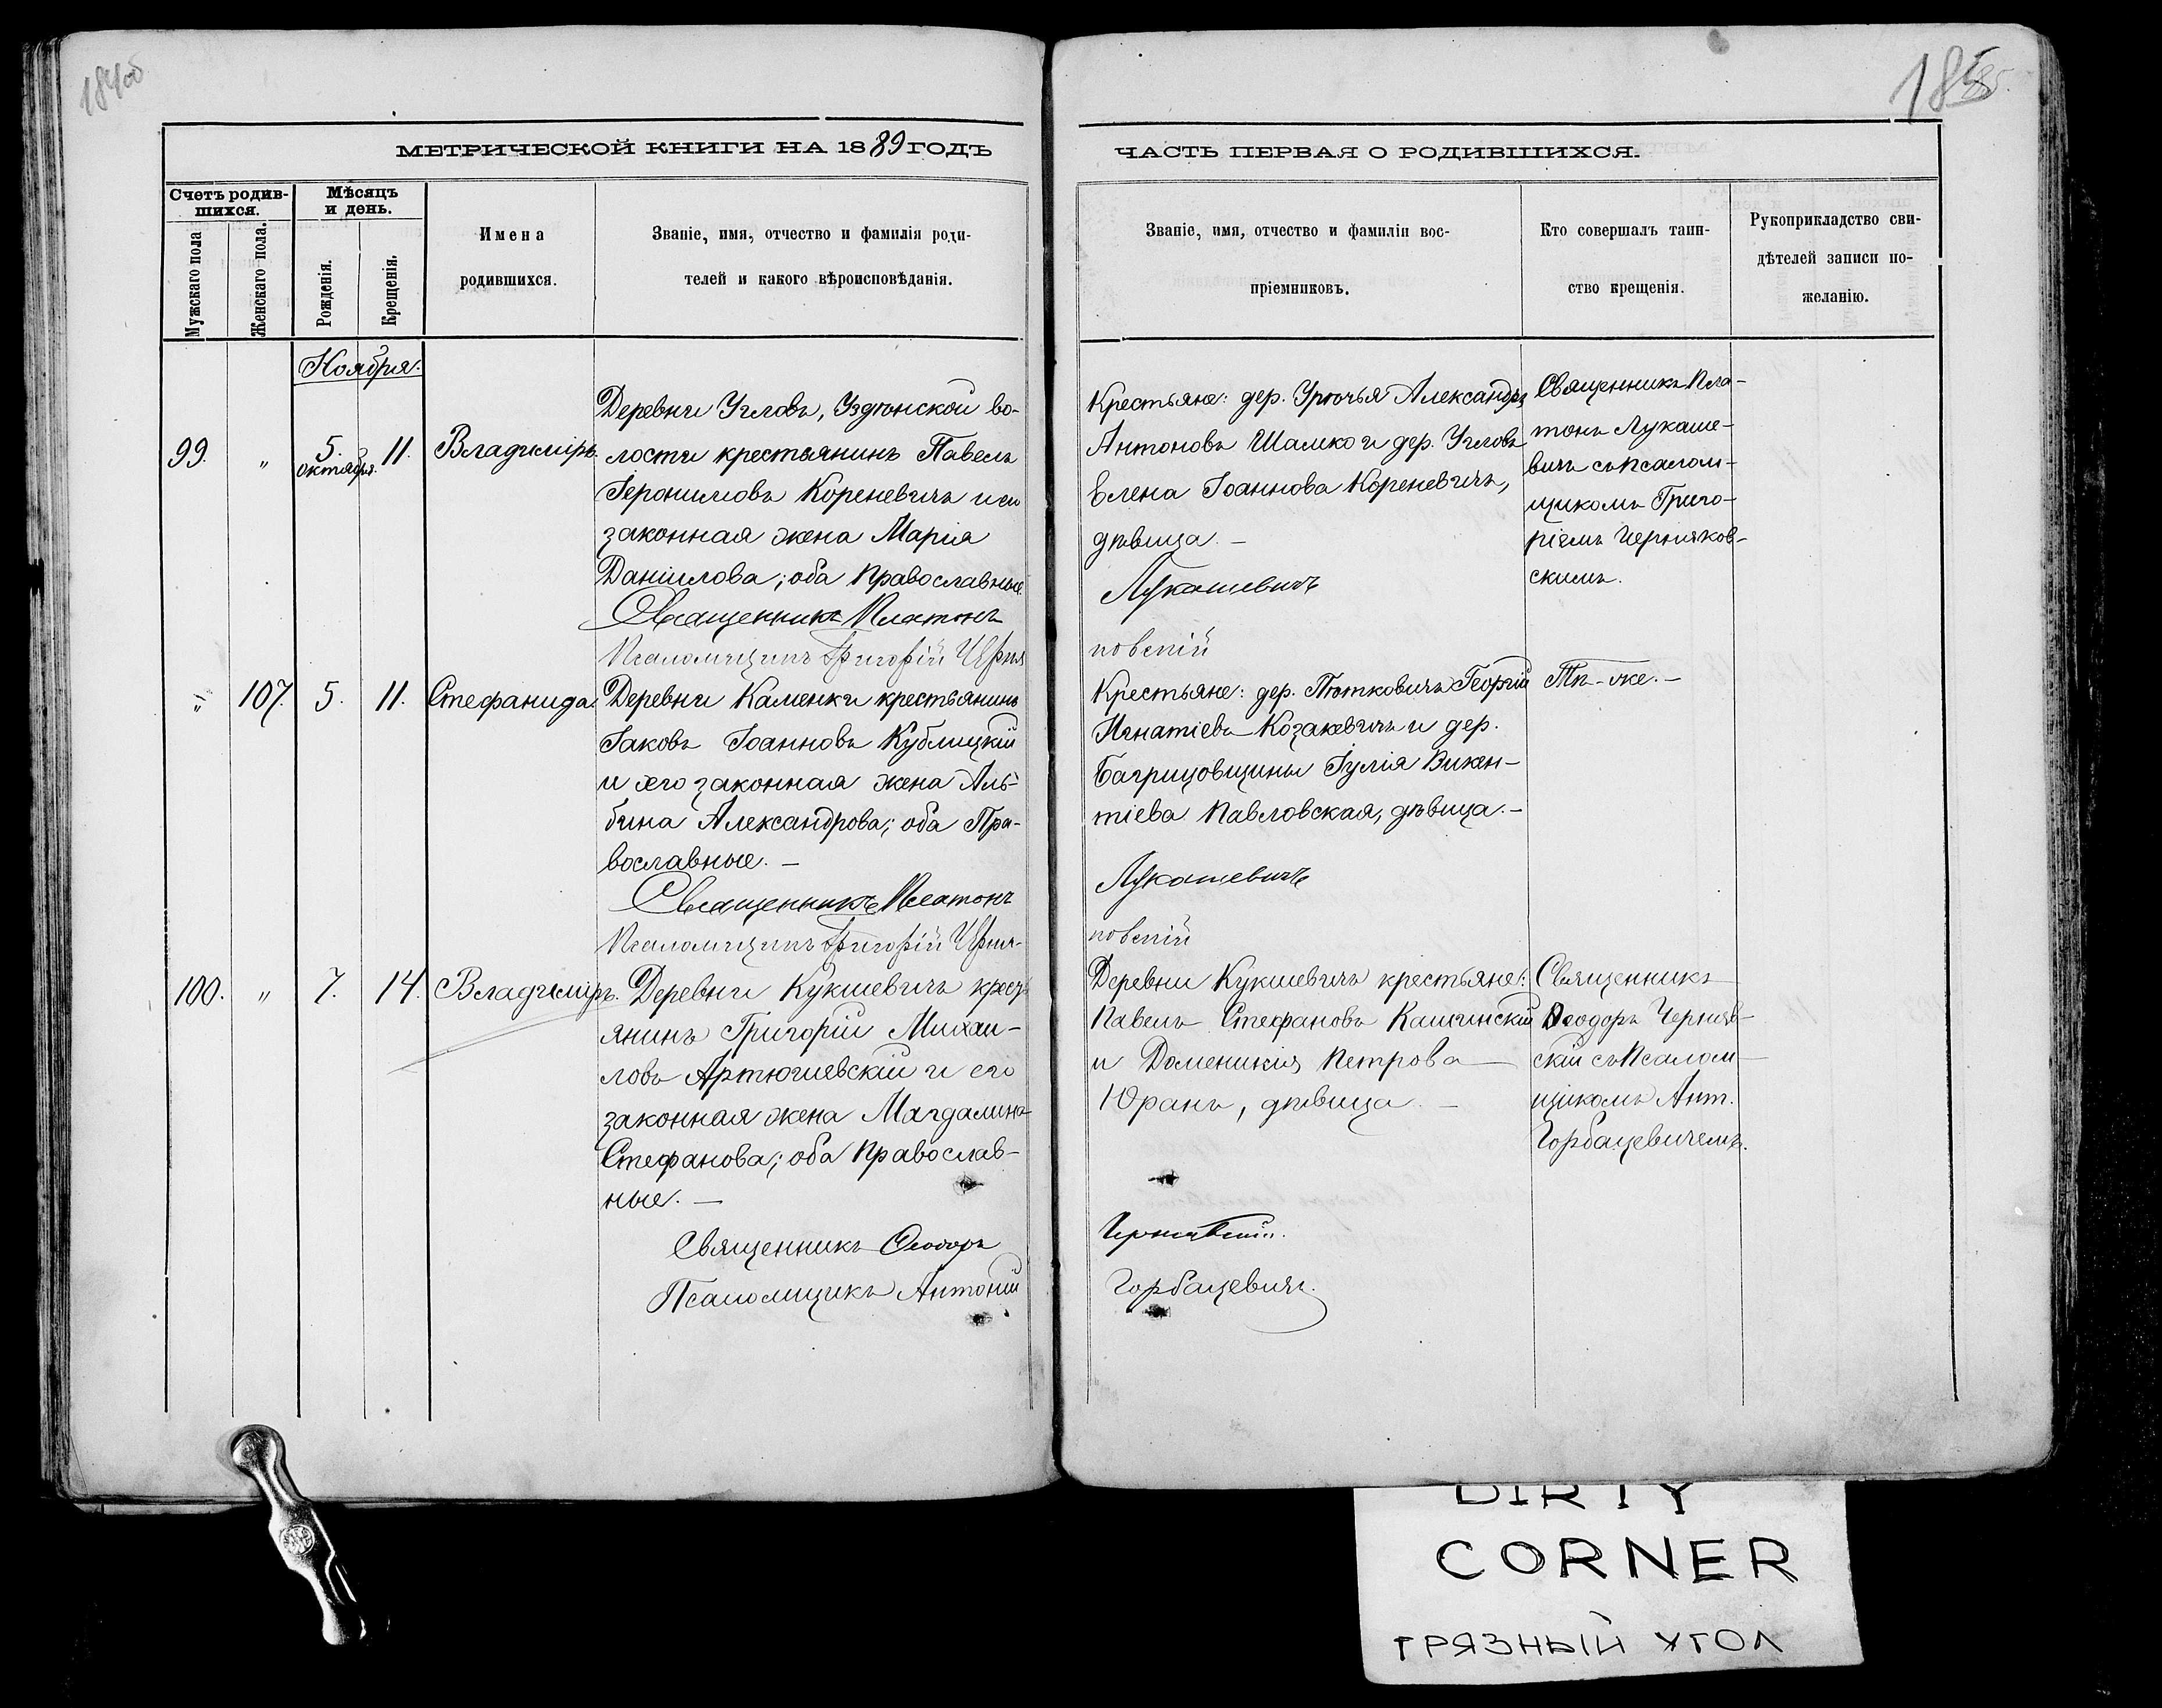 184об
185
МЕТРИЧЕСКОЙ КНИГИ НА 1889 ГОДЪ
ЧАСТЬ ПЕРВАЯ О РОДИВШИХСЯ.
Счетъ родив-
шихся.
Мужскаго пола
Женскаго пола.
Мѣсяцъ
и день.
Рожденія.
Крещенія.
Имена
родившихся.
Званіе, имя, отчество и фамилія роди-
телей и какого вѣроисповѣданія.
Званіе, имя, отчество и фамиліи вос-
пріемниковъ.
Кто совершалъ таин-
ство крещенія.
Рукоприкладство сви-
дѣтелей записи по-
желанію.
Ноября.
99. " 5. октября. 11. Владиміръ.
Деревни Угловъ, Уздѣнской во-
лости крестьянинъ Павелъ
Іеронимовъ Кореневичъ и его
законная жена Марія
Даніилова; оба Православные.
Священникъ Платонъ
Псаломщикъ Григорій Черня
Крестьяне: дер. Уречья Александръ
Антоновъ Шамко и дер. Угловъ
Елена Іоаннова Кореневичъ,
дѣвица. –
Лукашевичъ
ковскій
Священникъ Пла-
тонъ Лукаше-
вичъ съ псалом-
щикомъ Григо-
ріемъ Черняков-
скимъ.
" 107. 5. 11. Стефанида.
Деревни Каменки крестьянинъ
Іаковъ Іоанновъ Кублицкій
и его законная жена Аль-
бина Александрова; оба Пра-
вославные. –
Священникъ Платонъ
Псаломщикъ Григорій Черня-
Крестьяне: дер. Тютковичъ Георгій
Игнатіевъ Козакевичъ и дер.
Багрицовщины Іулія Викен-
тіева Павловская, дѣвица. –
Лукашевичъ
ковскій
Тѣ-же. –
100. " 7. 14. Владиміръ.
Деревни Кукшевичъ крест
янинъ Григорій Михаи-
ловъ Артюшевскій и его
законная жена Магдалина
Стефанова; оба Православ-
ные. –
Священникъ Ѳеодоръ
Псаломщикъ Антоній
Деревни Кукшевичъ крестьяне:
Павелъ Стефановъ
и Доменикія Петрова
Юранъ, дѣвица. –
Чернявскій.
Горбацевичъ.
Священникъ
Ѳеодоръ Черняв-
скій съ Псалом-
щикомъ Ант.
Горбацевичемъ.
DIRTY
CORNER
ГРЯЗНЫЙ УГОЛ